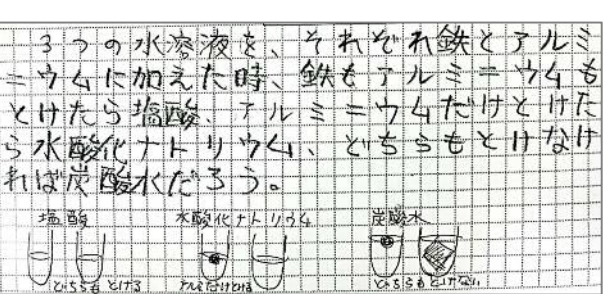 3つの水溶液を、それぞれ鉄とアルミ
ニウムに加えた時、鉄もアルミニウムも
とけたら塩酸、アルミニウムだけとけた
ら水酸化ナトリウム、どちらもとけなけ
れば炭酸水だろう。
塩酸 水酸化ナトリウム 炭酸水
どちらもとける アルミだけとける どちらもとけない